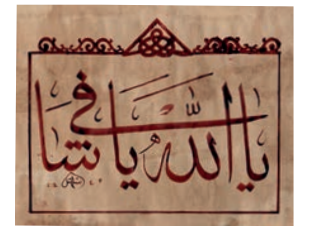 يا الله يا شافي